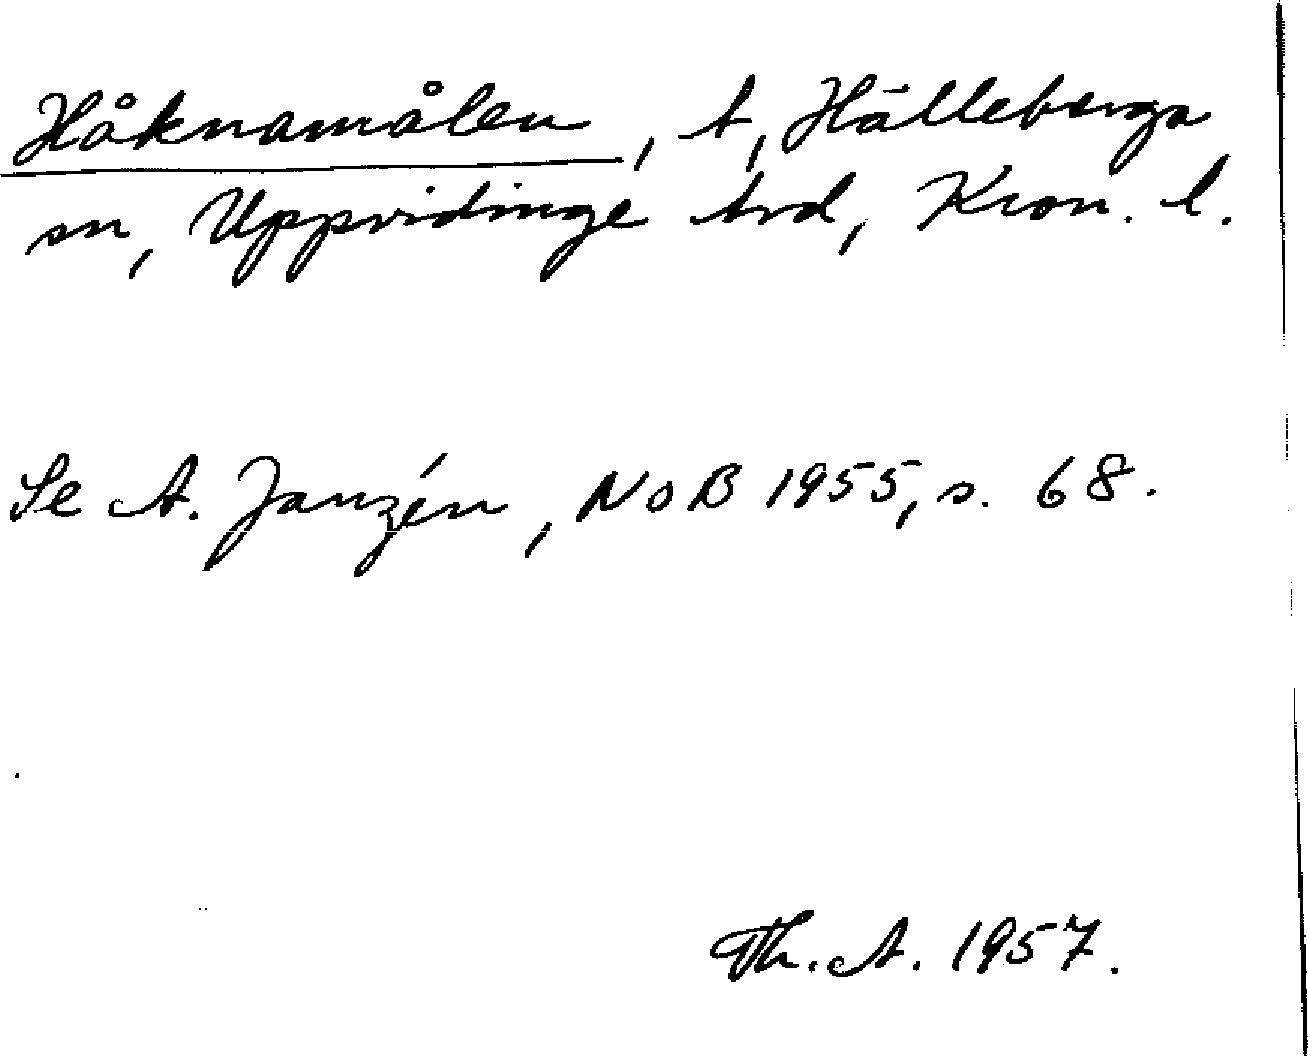 Håknamålen, t, Hälleberga
sn, Uppvidinge hrd, Kron. l.
Se A. Janzén, NoB 1955, s. 68.
Th. A. 1957.